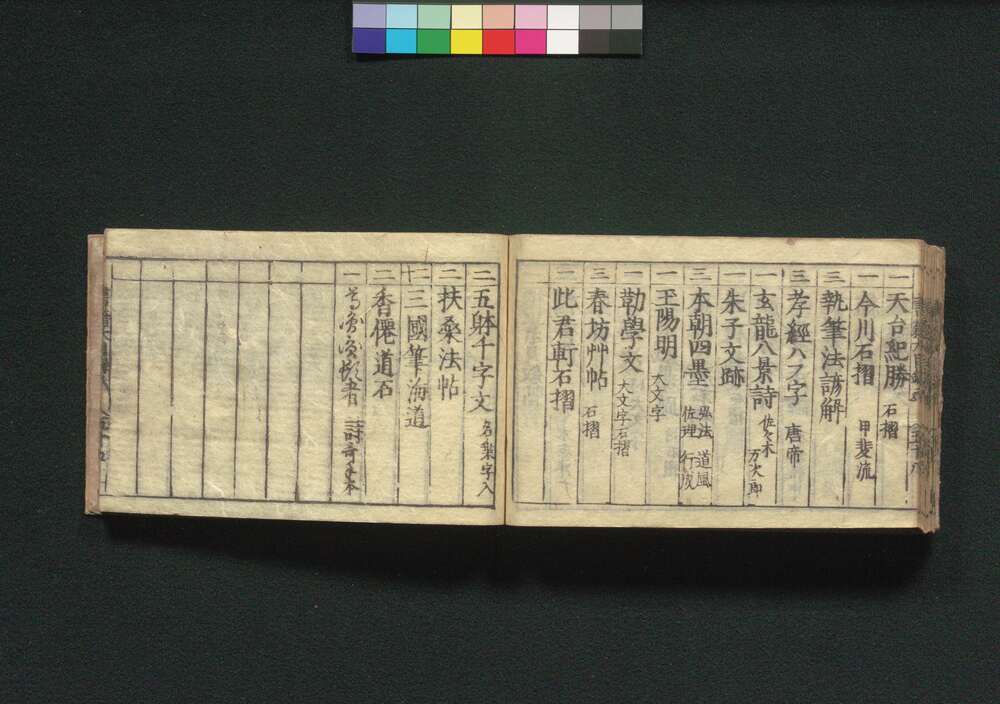 一 天台紀勝 石摺
一 今川石摺 甲斐流
三 執筆法諺解
三 孝經ハフ字 唐帝
一 玄龍八景詩 佐々木 万次郎
一 朱子文跡
三 本朝四墨 弘法 道風 佐理 行成
一 王陽明 大文字
一 勧學文 大文字石摺
三 春坊艸帖 石摺
二 此君軒石摺
二 五躰千字文 名乗字入
二 扶桑法帖
十二 三國筆海道
二 香僊道石
一 詩哥手本